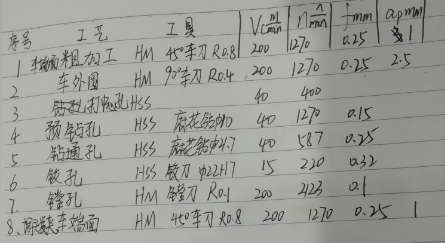 序号 工艺 工具 Vc m/min n r/min f mm ap mm
1 车端面粗加工 HM 45°车刀 R0.8 200 1270 0.25 1
2 车外圆 HM 90°车刀 R0.4 200 1270 0.25 2.5
3 钻孔打中心孔 HSS 40 400
4 预钻孔 HSS 麻花钻φ10 40 1270 0.15
5 钻通孔 HSS 麻花钻φ21.7 40 587 0.25
6 铰孔 HSS 铰刀 φ22H7 15 220 0.32
7 镗孔 HM 镗刀 R0.1 200 2123 0.1
8、车端面 HM 45°车刀 R0.8 200 1270 0.25 1